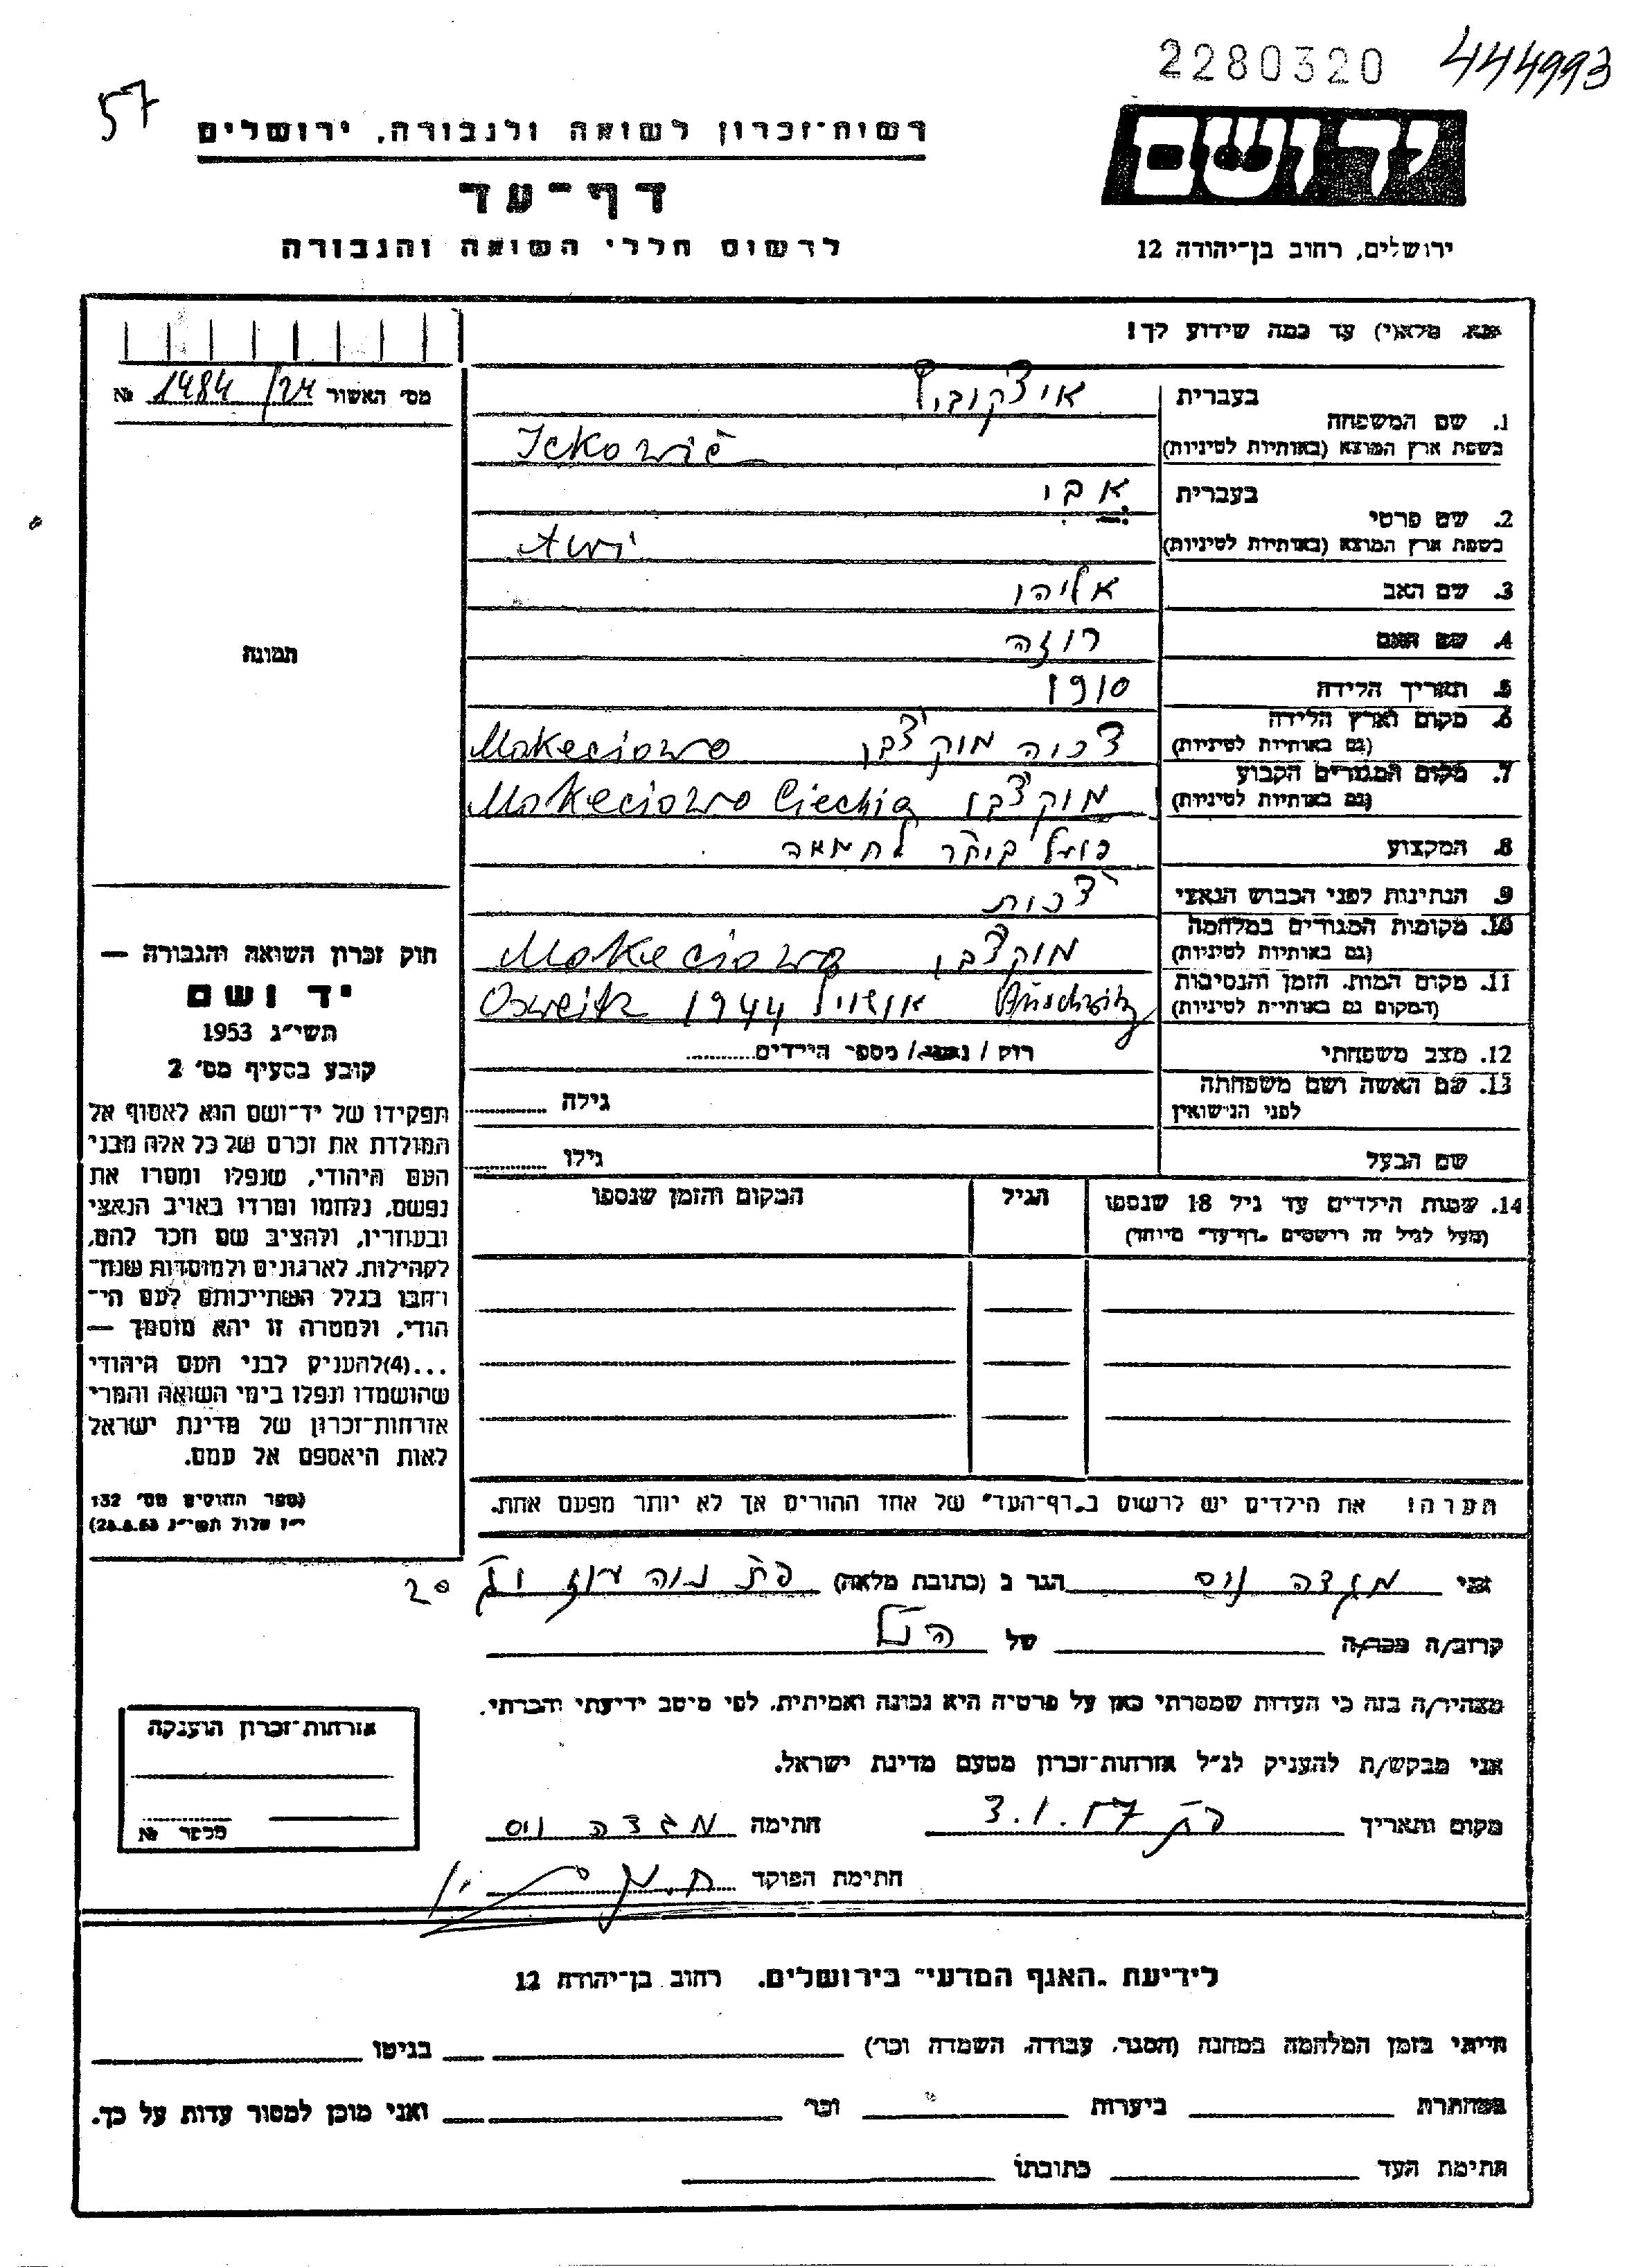 2280320 444993
57
רשות־זכרון לשואה ולגבורה, ירושלים
יד ושם
דף־עד
לרשום חללי השואה והגבורה
ירושלים, רחוב בן־יהודה 12
נא מלא(י) עד כמה שידוע לך!
מס׳ האשור 1484/24 №
1. שם המשפחה
בעברית איצקוביץ
בשפת ארץ המוצא (באותיות לטיניות) Ickowič
2. שם פרטי
בעברית אבי
בשפת ארץ המוצא (באותיות לטיניות) Awi
3. שם האב אליהו
4. שם האם רוזה
תמונה
5. תאריך הלידה 1910
6. מקום וארץ הלידה
(גם באותיות לטיניות) צ׳כיה מוקצ׳בו Makeciowo
7. מקום המגורים הקבוע
(גם באותיות לטיניות) מוקצ׳בו Makeciowo Ciechia
8. המקצוע
9. הנתינות לפני הכבוש הנאצי צ׳כית
10. מקומות המגורים במלחמה
(גם באותיות לטיניות) מוקצ׳בו Makeciowo
11. מקום המות, הזמן והנסיבות
(המקום גם באותיות לטיניות) Auschwitz 1944
12. מצב משפחתי רוק / נשוי / מספר הילדים
13. שם האשה ושם משפחתה
לפני הנישואין גילה
שם הבעל גילו
14. שמות הילדים עד גיל 18 שנספו הגיל המקום והזמן שנספו
(מעל לגיל זה רושמים „דף־עד״ מיוחד)
הערה! את הילדים יש לרשום ב„דף־העד״ של אחד ההורים אך לא יותר מפעם אחת.
חוק זכרון השואה והגבורה —
יד ושם
תשי״ג 1953
קובע בסעיף מס׳ 2
תפקידו של יד־ושם הוא לאסוף אל
המולדת את זכרם של כל אלה מבני
העם היהודי, שנפלו ומסרו את
נפשם, נלחמו ומרדו באויב הנאצי
ובעוזריו, ולהציב שם וזכר להם,
לקהילות, לארגונים ולמוסדות שנח־
רחבו בגלל השתייכותם לעם הי־
הודי, ולמטרה זו יהא מוסמך —
...(4)להעניק לבני העם היהודי
שהושמדו ונפלו בימי השואה והמרי
אזרחות־זכרון של מדינת ישראל
לאות היאספם אל עמם.
(ספר החוקים מס׳ 132
י״ז אלול תשי״ג 28.8.53)
אני מגדה וייס הגר ב (כתובת מלאה) פת נוה עוז 20
קרוב/ה מכר/ה של
מצהיר/ה בזה כי העדות שמסרתי כאן על פרטיה היא נכונה ואמיתית, לפי מיטב ידיעתי והכרתי.
אני מבקש/ת להעניק לנ״ל אזרחות־זכרון מטעם מדינת ישראל.
מקום ותאריך פת 3.1.57 חתימה מגדה וייס
חתימת הפוקד
אזרחות־זכרון הוענקה
מספר №
לידיעת „האגף המדעי״ בירושלים. רחוב בן־יהודה 12
הייתי בזמן המלחמה במחנה (הסגר, עבודה, השמדה וכר׳) בגיטו
במחתרת ביערות וכר ואני מוכן למסור עדות על כך.
חתימת העד כתובתו